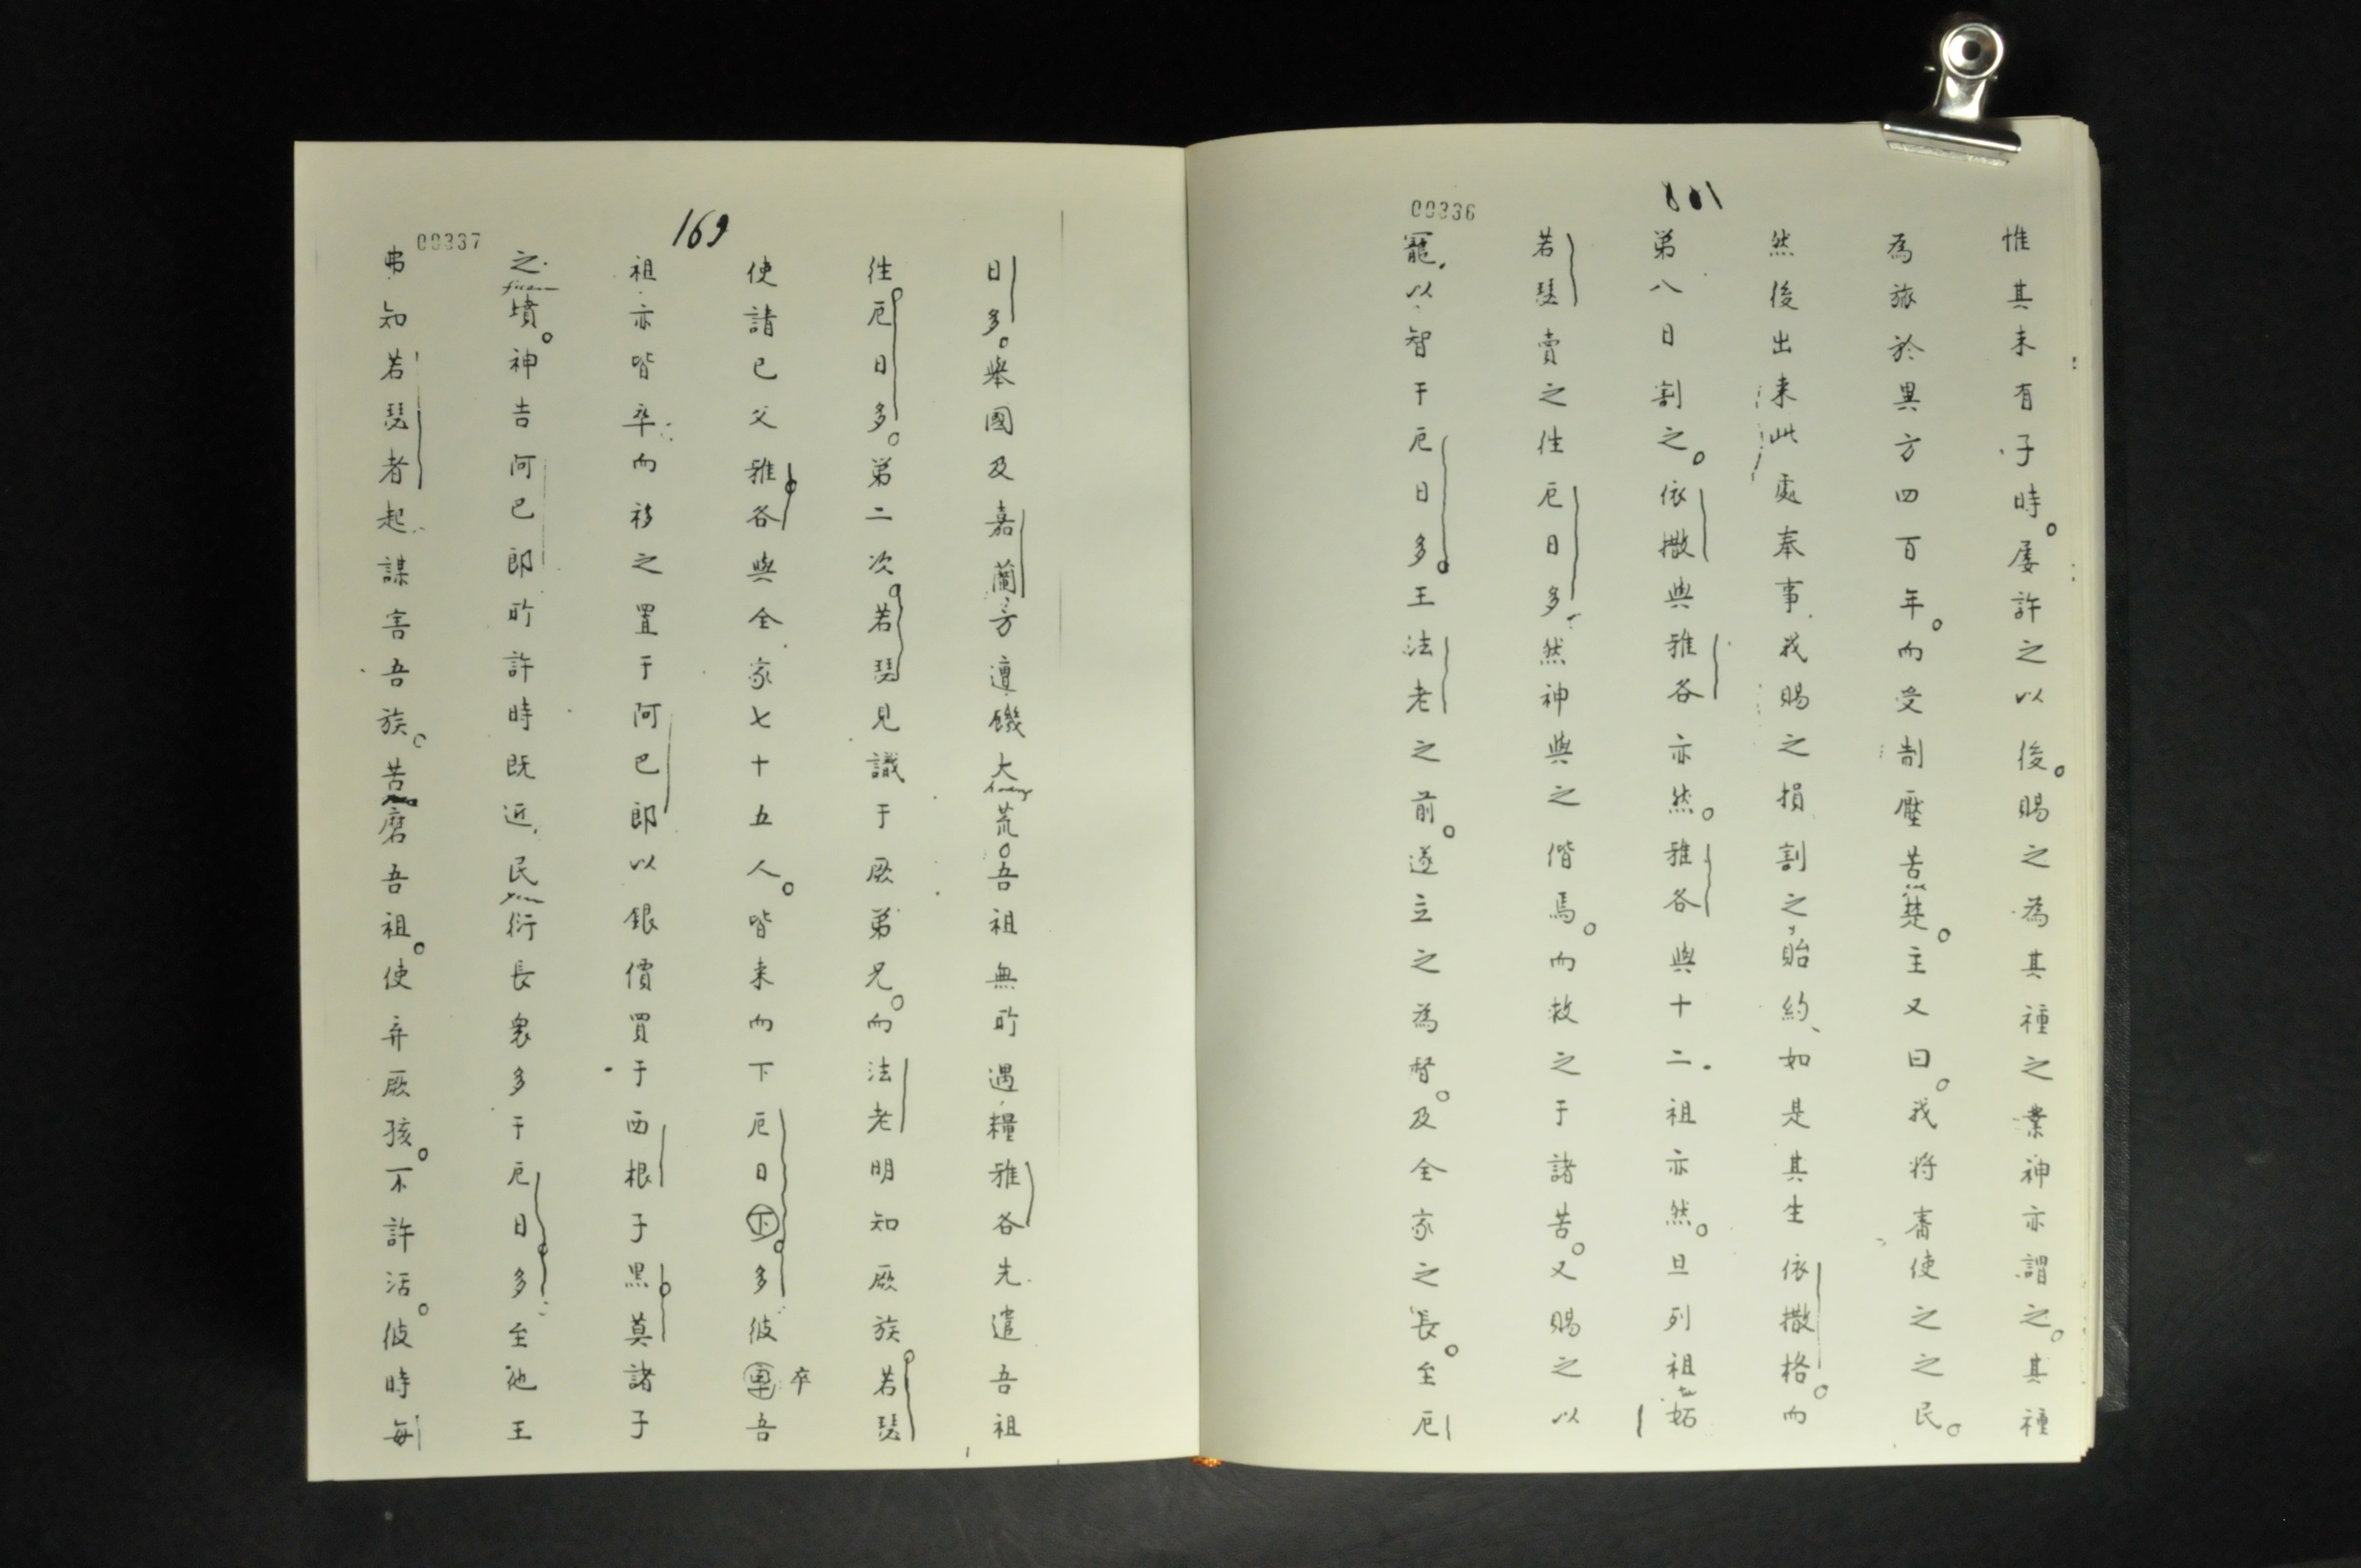 00336
惟其未有子時。屡許之以後。賜之為其種之業神亦謂之。其種
為旅於異方四百年。而受制壓苦楚。主又曰。我将審使之之民。
然後出来此處奉事我賜之損割之貽約、如是其生依撒格。而
第八日割之。依撒與雅各亦然。雅各與十二祖亦然。旦列祖妬
若瑟賣之徃厄日多然神與之偕焉。而救之于諸苦。又賜之以
寵以智于厄日多。王法老之前。遂立之為督。及全家之長。至厄
169
00337
日多。舉國及嘉蘭方遭饑大荒。吾祖無所遇糧雅各先遣吾祖
徃厄日多。第二次。若瑟見識于厥弟兄。而法老明知厥族若瑟
使請已父雅各與全家七十五人。皆来而下厄日下多彼卒吾
祖亦皆卒而移之置于阿巴郎以銀價買于西根子黒莫諸子
之墳。神告阿巴郎所許時既近民衍長衆多于厄日多至他王
弗知若瑟者起謀害吾族。苦磨吾祖。使弃厥孩。不許活。彼時每